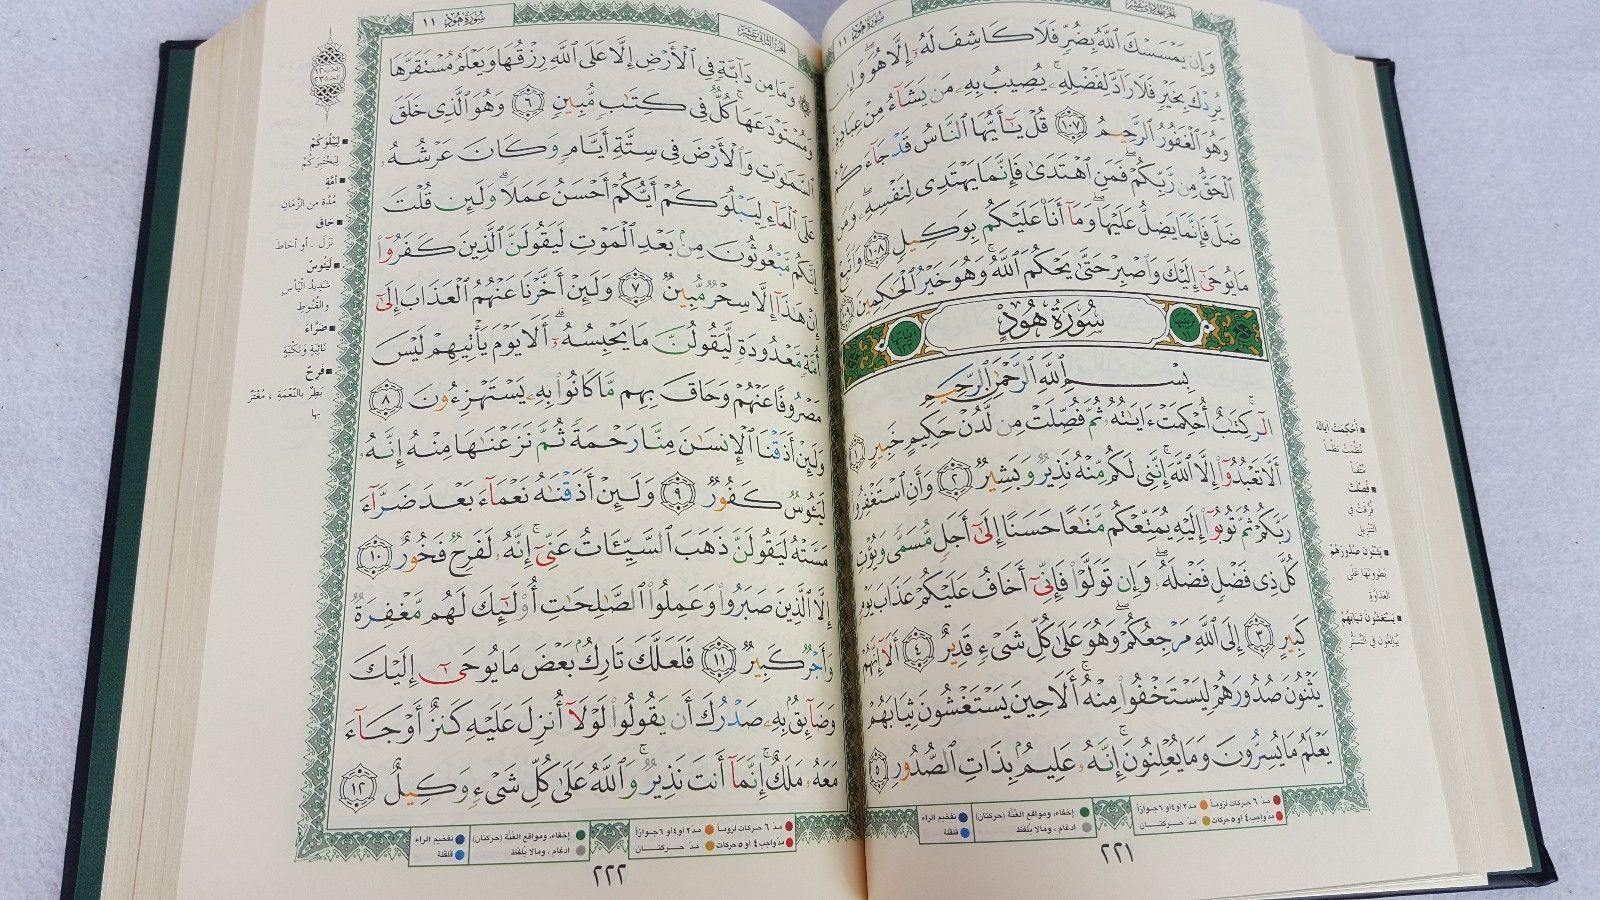 سورة هود ١١
وَإِن يَمْسَسْكَ ٱللَّهُ بِضُرٍّ فَلَا كَاشِفَ لَهُۥٓ إِلَّا هُوَ ۖ وَإِن
يُرِدْكَ بِخَيْرٍ فَلَا رَآدَّ لِفَضْلِهِۦ ۚ يُصِيبُ بِهِۦ مَن يَشَآءُ مِنْ عِبَادِهِۦ ۚ
وَهُوَ ٱلْغَفُورُ ٱلرَّحِيمُ ١٠٧ قُلْ يَٰٓأَيُّهَا ٱلنَّاسُ قَدْ جَآءَكُمُ
ٱلْحَقُّ مِن رَّبِّكُمْ ۖ فَمَنِ ٱهْتَدَىٰ فَإِنَّمَا يَهْتَدِى لِنَفْسِهِۦ ۖ وَمَن
ضَلَّ فَإِنَّمَا يَضِلُّ عَلَيْهَا ۖ وَمَآ أَنَا۠ عَلَيْكُم بِوَكِيلٍ ١٠٨ وَٱتَّبِعْ
مَا يُوحَىٰٓ إِلَيْكَ وَٱصْبِرْ حَتَّىٰ يَحْكُمَ ٱللَّهُ ۚ وَهُوَ خَيْرُ ٱلْحَٰكِمِينَ ١٠٩
سُورَةُ هُودٍ
بِسْمِ ٱللَّهِ ٱلرَّحْمَٰنِ ٱلرَّحِيمِ
الٓر ۚ كِتَٰبٌ أُحْكِمَتْ ءَايَٰتُهُۥ ثُمَّ فُصِّلَتْ مِن لَّدُنْ حَكِيمٍ خَبِيرٍ ١
أَلَّا تَعْبُدُوٓا۟ إِلَّا ٱللَّهَ ۚ إِنَّنِى لَكُم مِّنْهُ نَذِيرٌ وَبَشِيرٌ ٢ وَأَنِ ٱسْتَغْفِرُوا۟
رَبَّكُمْ ثُمَّ تُوبُوٓا۟ إِلَيْهِ يُمَتِّعْكُم مَّتَٰعًا حَسَنًا إِلَىٰٓ أَجَلٍ مُّسَمًّى وَيُؤْتِ
كُلَّ ذِى فَضْلٍ فَضْلَهُۥ ۖ وَإِن تَوَلَّوْا۟ فَإِنِّىٓ أَخَافُ عَلَيْكُمْ عَذَابَ يَوْمٍ
كَبِيرٍ ٣ إِلَى ٱللَّهِ مَرْجِعُكُمْ ۖ وَهُوَ عَلَىٰ كُلِّ شَىْءٍ قَدِيرٌ ٤ أَلَآ إِنَّهُمْ
يَثْنُونَ صُدُورَهُمْ لِيَسْتَخْفُوا۟ مِنْهُ ۚ أَلَا حِينَ يَسْتَغْشُونَ ثِيَابَهُمْ
يَعْلَمُ مَا يُسِرُّونَ وَمَا يُعْلِنُونَ ۚ إِنَّهُۥ عَلِيمٌۢ بِذَاتِ ٱلصُّدُورِ ٥
■ أُحْكِمَتْ آيَاتُهُ
نُظِّمَتْ نَظْماً
مُتْقَناً
■ فُصِّلَتْ
فُرِّقَتْ في
التَّنْزِيلِ
■ يَثْنُونَ صُدُورَهُمْ
يَطْوُونَهَا عَلَى
العَدَاوَةِ
■ يَسْتَغْشُونَ ثِيَابَهُمْ
يُبَالِغُون في التَّسَتُّرِ
مد ٦ حركات لزوماً مد ٢ أو ٤ أو ٦ جوازاً
مد واجب ٤ أو ٥ حركات مد حركتان
إخفاء، ومواقع الغُنَّة (حركتان) تفخيم الراء
ادغام، ومالا يُلفَظ قلقلة
٢٢١
الجزء الثاني عشر
سُورَةُ هُودٍ ١١
وَمَا مِن دَآبَّةٍ فِى ٱلْأَرْضِ إِلَّا عَلَى ٱللَّهِ رِزْقُهَا وَيَعْلَمُ مُسْتَقَرَّهَا
وَمُسْتَوْدَعَهَا ۚ كُلٌّ فِى كِتَٰبٍ مُّبِينٍ ٦ وَهُوَ ٱلَّذِى خَلَقَ
ٱلسَّمَٰوَٰتِ وَٱلْأَرْضَ فِى سِتَّةِ أَيَّامٍ وَكَانَ عَرْشُهُۥ
عَلَى ٱلْمَآءِ لِيَبْلُوَكُمْ أَيُّكُمْ أَحْسَنُ عَمَلًا ۗ وَلَئِن قُلْتَ
إِنَّكُم مَّبْعُوثُونَ مِنۢ بَعْدِ ٱلْمَوْتِ لَيَقُولَنَّ ٱلَّذِينَ كَفَرُوٓا۟
إِنْ هَٰذَآ إِلَّا سِحْرٌ مُّبِينٌ ٧ وَلَئِنْ أَخَّرْنَا عَنْهُمُ ٱلْعَذَابَ إِلَىٰٓ
أُمَّةٍ مَّعْدُودَةٍ لَّيَقُولُنَّ مَا يَحْبِسُهُۥٓ ۗ أَلَا يَوْمَ يَأْتِيهِمْ لَيْسَ
مَصْرُوفًا عَنْهُمْ وَحَاقَ بِهِم مَّا كَانُوا۟ بِهِۦ يَسْتَهْزِءُونَ ٨
وَلَئِنْ أَذَقْنَا ٱلْإِنسَٰنَ مِنَّا رَحْمَةً ثُمَّ نَزَعْنَٰهَا مِنْهُ إِنَّهُۥ
لَيَـُٔوسٌ كَفُورٌ ٩ وَلَئِنْ أَذَقْنَٰهُ نَعْمَآءَ بَعْدَ ضَرَّآءَ
مَسَّتْهُ لَيَقُولَنَّ ذَهَبَ ٱلسَّيِّـَٔاتُ عَنِّىٓ ۚ إِنَّهُۥ لَفَرِحٌ فَخُورٌ ١٠
إِلَّا ٱلَّذِينَ صَبَرُوا۟ وَعَمِلُوا۟ ٱلصَّٰلِحَٰتِ أُو۟لَٰٓئِكَ لَهُم مَّغْفِرَةٌ
وَأَجْرٌ كَبِيرٌ ١١ فَلَعَلَّكَ تَارِكٌۢ بَعْضَ مَا يُوحَىٰٓ إِلَيْكَ
وَضَآئِقٌۢ بِهِۦ صَدْرُكَ أَن يَقُولُوا۟ لَوْلَآ أُنزِلَ عَلَيْهِ كَنزٌ أَوْ جَآءَ
مَعَهُۥ مَلَكٌ ۚ إِنَّمَآ أَنتَ نَذِيرٌ ۚ وَٱللَّهُ عَلَىٰ كُلِّ شَىْءٍ وَكِيلٌ ١٢
■ لِيَبْلُوَكُمْ
لِيَخْتَبِرَكُمْ
■ أُمَّةٍ
مُدَّةٍ من الزَّمَانِ
■ حَاقَ
نَزَلَ . أو أحَاطَ
■ لَيَئُوسٌ
شَدِيدُ اليَأْسِ
والقُنُوطِ
■ ضَرَّاءَ
نَائِبَةٍ وَنَكْبَةٍ
■ فَرِحٌ
بَطِرٌ بالنِّعْمَةِ ، مُغْتَرٌّ
بها
مد ٦ حركات لزوماً مد ٢ أو ٤ أو ٦ جوازاً
مد واجب ٤ أو ٥ حركات مد حركتان
إخفاء، ومواقع الغُنَّة (حركتان) تفخيم الراء
ادغام، ومالا يُلفَظ قلقلة
٢٢٢